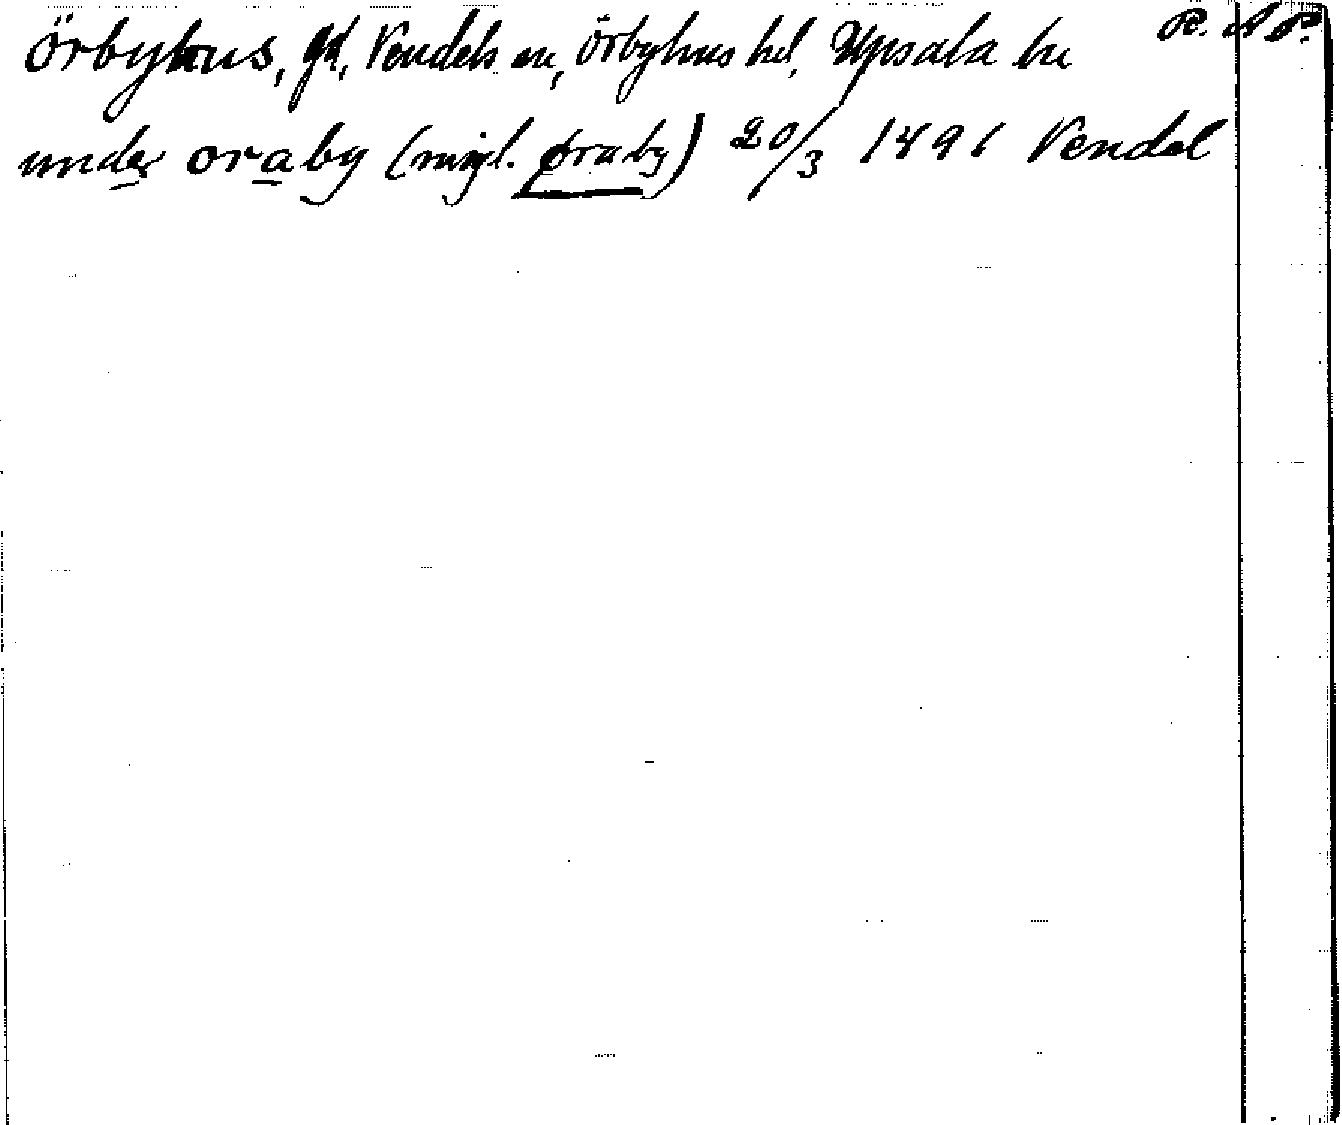 Örbyhus, gd, Vendels sn, Örbyhus hd, Upsala län R. A. P.
under oraby (mijl. øraby) 20/3 1491 Vendel